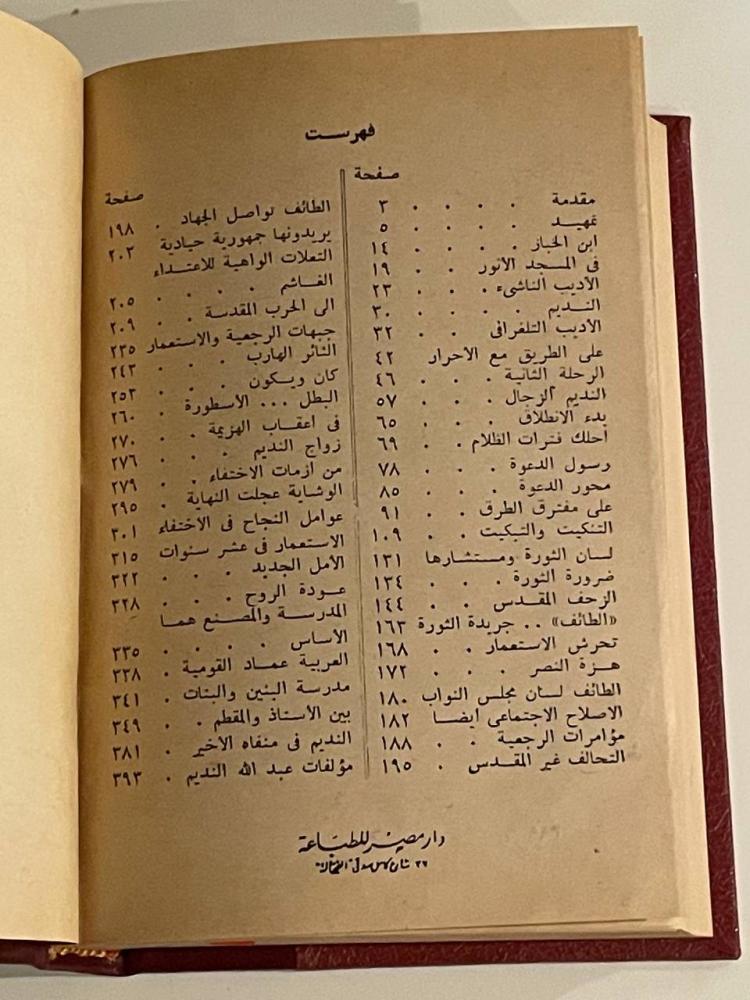 فهرست
صفحة
مقدمة . . . . ٣
تمهيد . . . . ٥
ابن الخباز . . . . ١٤
فى المسجد الأنور . . ١٩
الأديب الناشىء . . . ٢٣
النديم . . . . ٣٠
الأديب التلغرافى . . ٣٢
على الطريق مع الأحرار ٤٢
الرحلة الثانية . . . ٤٦
النديم الزجال . . . ٥٧
بدء الانطلاق . . . ٦٥
أحلك فترات الظلام . . ٦٩
رسول الدعوة . . . ٧٨
محور الدعوة . . . ٨٥
على مفترق الطرق . . ٩١
التنكيت والتبكيت . . ١٠٩
لسان الثورة ومستشارها ١٣١
ضرورة الثورة . . . ١٣٤
الزحف المقدس . . ١٤٤
«الطائف» .. جريدة الثورة ١٦٣
تحرش الاستعمار . . ١٦٨
هزة النصر . . . ١٧٢
الطائف لسان مجلس النواب ١٨٠
الاصلاح الاجتماعى أيضا ١٨٢
مؤامرات الرجعية . . ١٨٨
التحالف غير المقدس . ١٩٥
صفحة
الطائف تواصل الجهاد . ١٩٨
يريدونها جمهورية حيادية ٢٠٣
التعلات الواهية للاعتداء
الغاشم . . . . ٢٠٥
الى الحرب المقدسة . . ٢٠٩
جبهات الرجعية والاستعمار ٢٣٥
الثائر الهارب . . . ٢٤٣
كان ويكون . . . ٢٥٣
البطل ... الأسطورة . ٢٦٠
فى أعقاب الهزيمة . . ٢٧٠
زواج النديم . . . ٢٧٦
من أزمات الاختفاء . . ٢٧٩
الوشاية عجلت النهاية . ٢٩٥
عوامل النجاح فى الاختفاء ٣٠١
الاستعمار فى عشر سنوات ٣١٥
الأمل الجديد . . . ٣٢٢
عودة الروح . . . ٣٢٨
المدرسة والمصنع هما
الأساس . . . . ٣٣٥
العربية عماد القومية . ٣٣٨
مدرسة البنين والبنات . ٣٤١
بين الأستاذ والمقطم . . ٣٤٩
النديم فى منفاه الأخير . ٣٨١
مؤلفات عبد الله النديم . ٣٩٣
دار مصر للطباعة
٣٧ شارع كامل صدقى